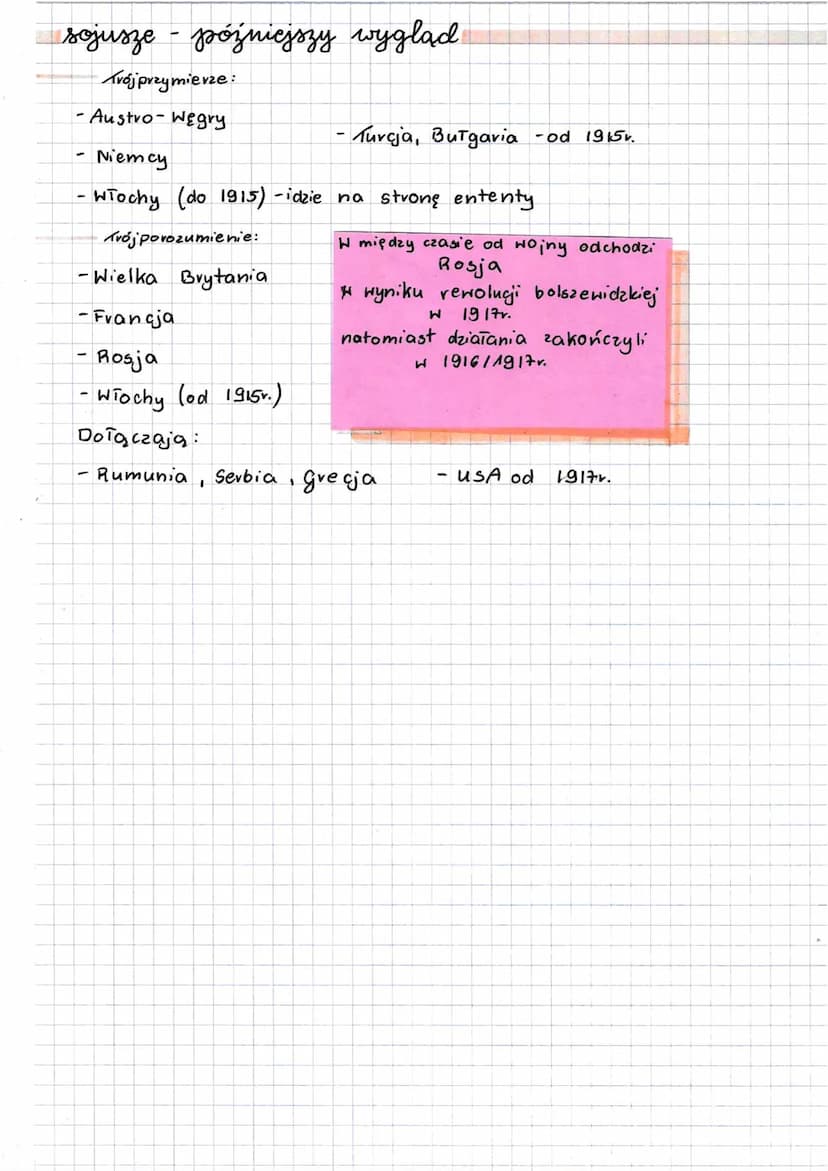 sojusze - późniejszy wygląd
Trójprzymierze:
- Austro-Węgry
- Turcja, Bułgaria - od 1915r.
- Niemcy
- Włochy (do 1915) - idzie na stronę ententy
Trójporozumienie:
- Wielka Brytania
- Francja
- Rosja
- Włochy (od 1915r.)
W między czasie od wojny odchodzi
Rosja
W wyniku rewolucji bolszewidzkiej
w 1917r.
natomiast działania zakończyli
w 1916/1917r.
Dołączają:
- Rumunia, Serbia, Grecja - USA od 1917r.